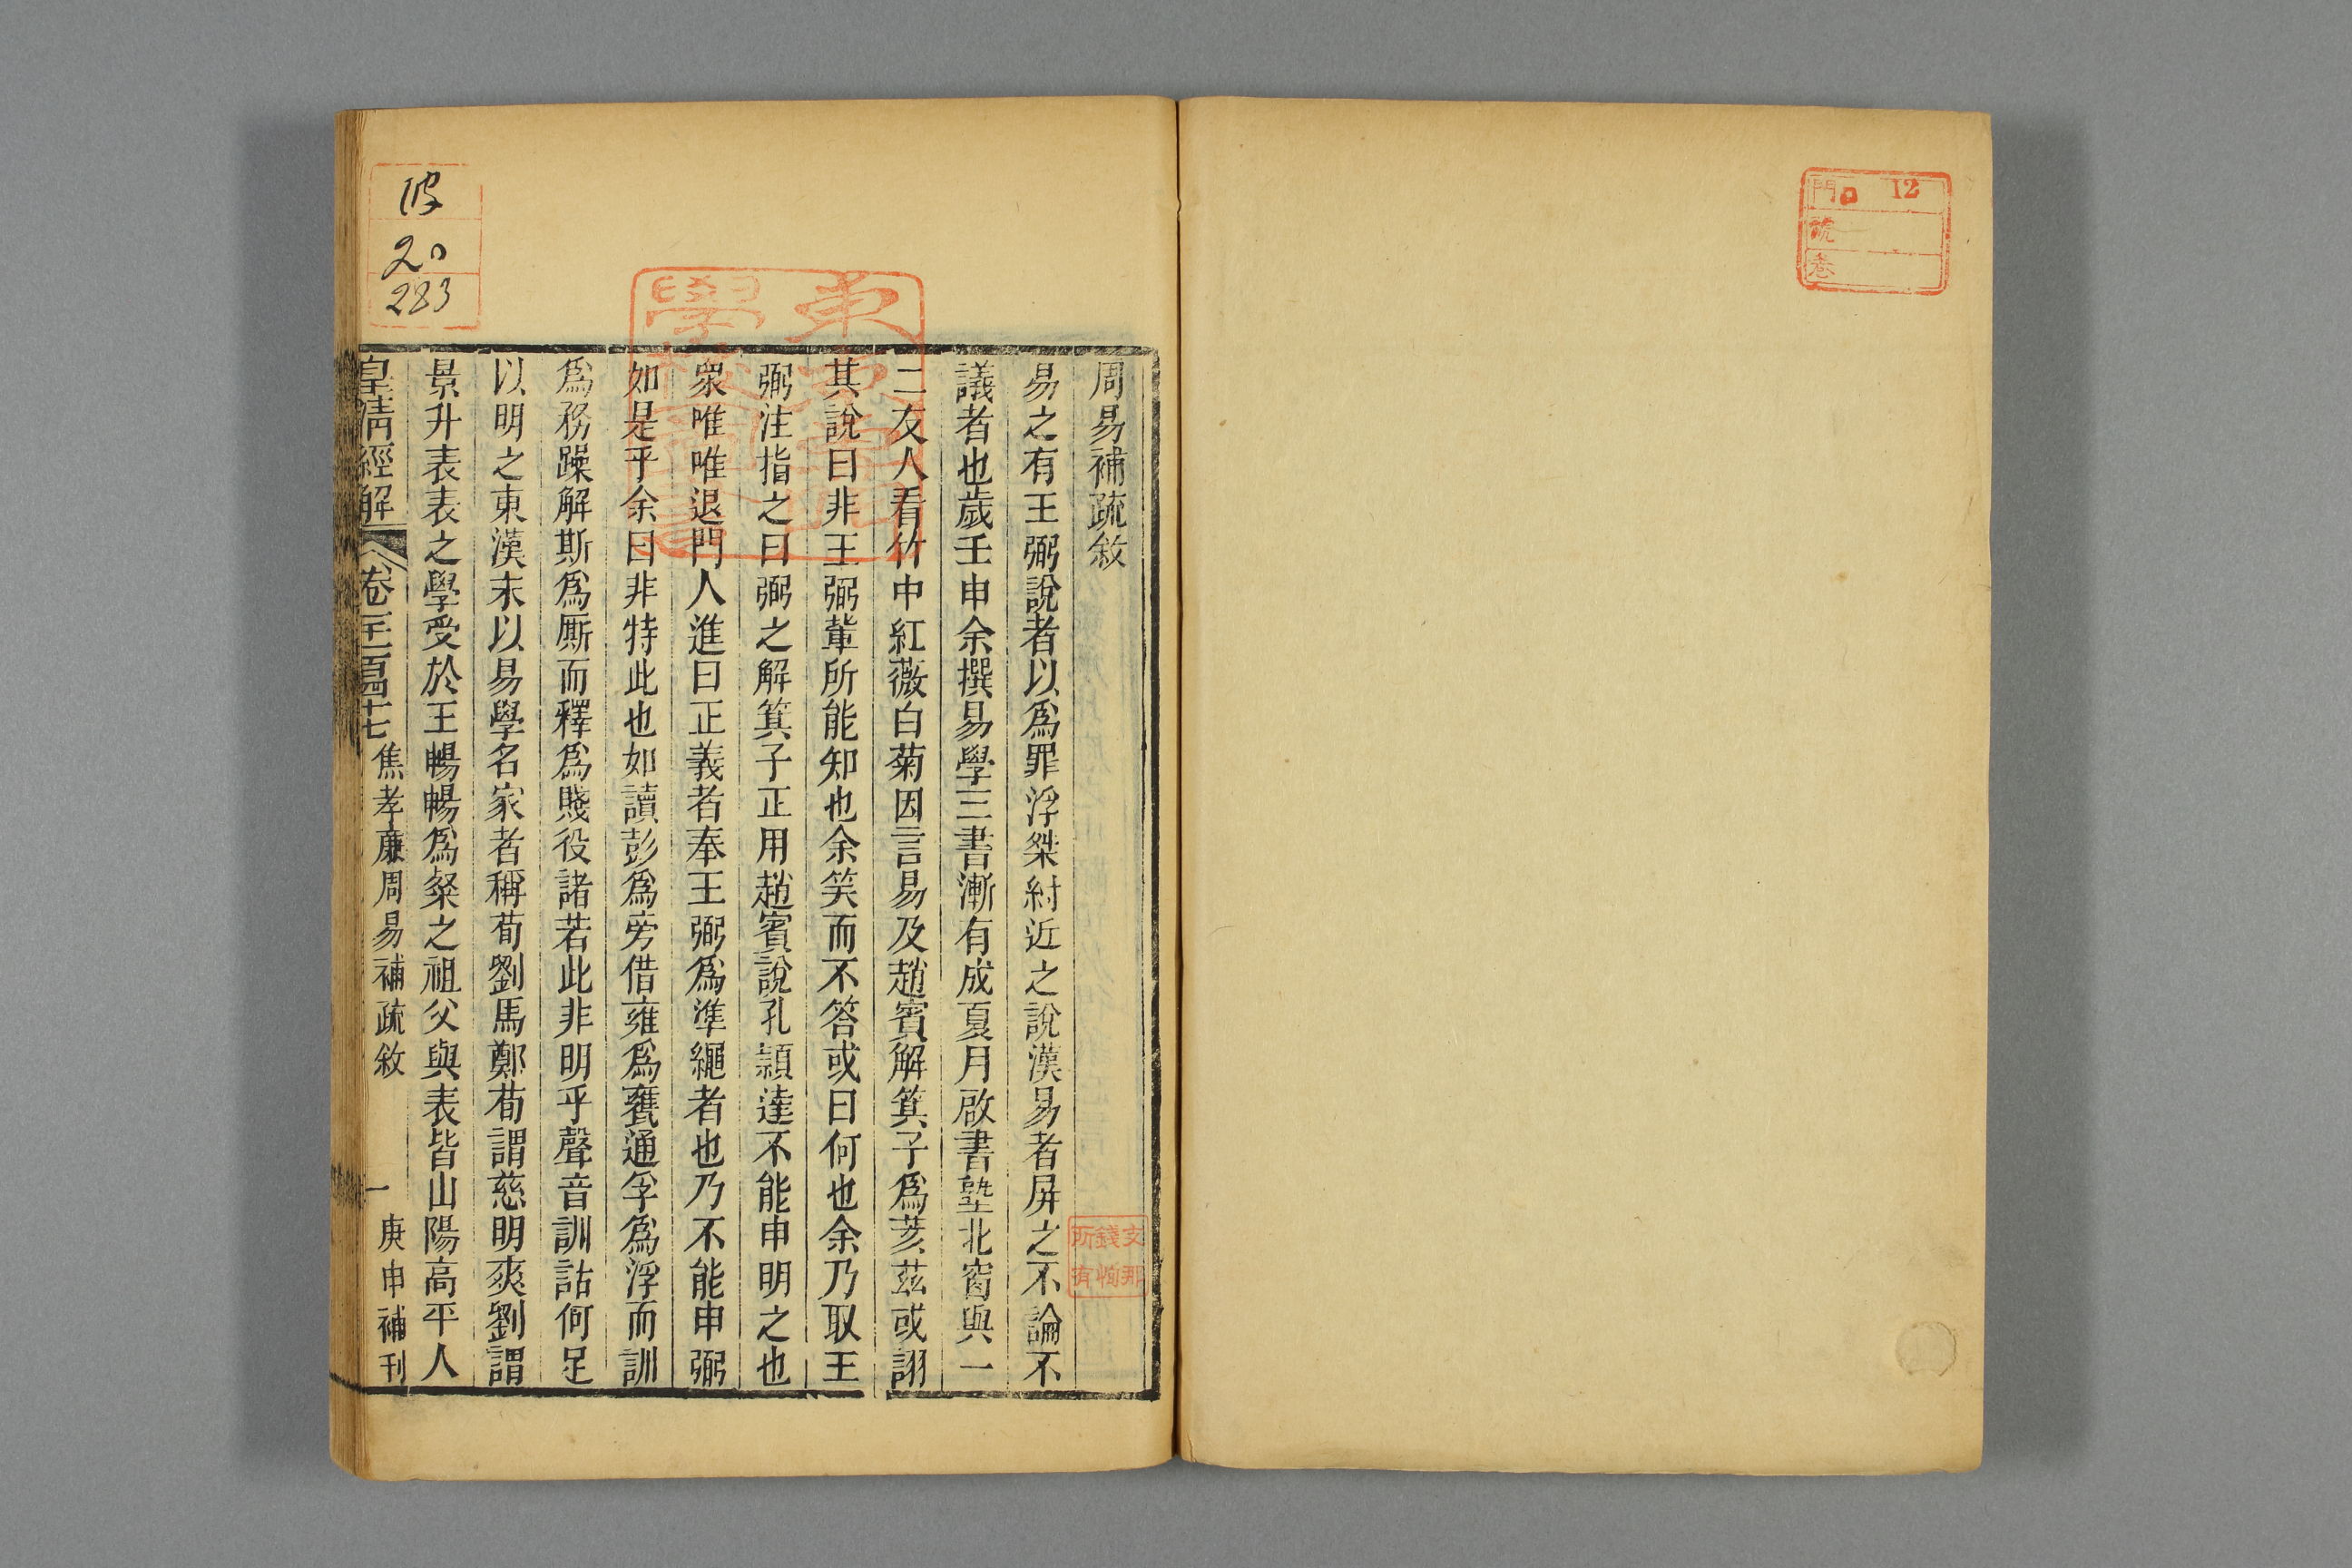 門 12
號
卷
周易補疏敘
易之有王弼說者以爲罪浮桀紂近之說漢易者屏之不論不
議者也歲壬申余撰易學三書漸有成夏月啟書塾北窗與一
二友人看竹中紅薇白菊因言易及趙賓解箕子爲荄茲或詡
其說曰非王弼輩所能知也余笑而不答或曰何也余乃取王
弼注指之曰弼之解箕子正用趙賓說孔穎達不能申明之也
衆唯唯退門人進曰正義者奉王弼爲準繩者也乃不能申弼
如是乎余曰非特此也如讀彭爲旁借雍爲甕通孚爲浮而訓
爲務躁解斯爲廝而釋爲賤役諸若此非明乎聲音訓詁何足
以明之東漢末以易學名家者稱荀劉馬鄭荀謂慈明爽劉謂
景升表表之學受於王暢暢爲粲之祖父與表皆山陽高平人
皇清經解 卷一千一百四十七 焦孝廉周易補疏敘 一 庚申補刊
20
283